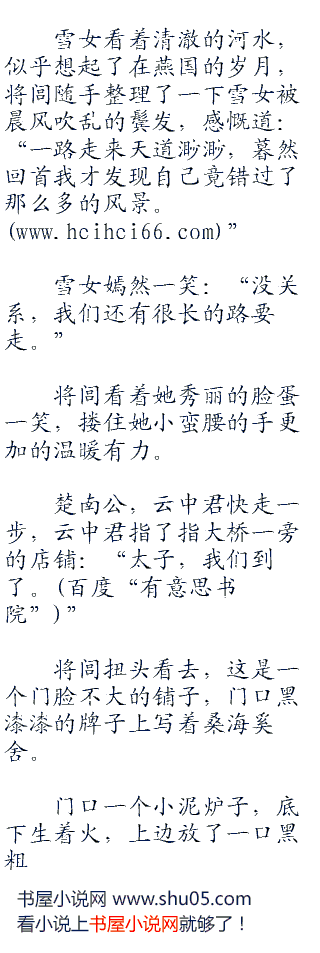 雪女看着清澈的河水，
似乎想起了在燕国的岁月，
将闾随手整理了一下雪女被
晨风吹乱的鬓发，感慨道：
“一路走来天道渺渺，暮然
回首我才发现自己竟错过了
那么多的风景。
(www.hcihci66.com)”
雪女嫣然一笑：“没关
系，我们还有很长的路要
走。”
将闾看着她秀丽的脸蛋
一笑，搂住她小蛮腰的手更
加的温暖有力。
楚南公，云中君快走一
步，云中君指了指大桥一旁
的店铺：“太子，我们到
了。(百度“有意思书
院”)”
将闾扭头看去，这是一
个门脸不大的铺子，门口黑
漆漆的牌子上写着桑海奚
舍。
门口一个小泥炉子，底
下生着火，上边放了一口黑
粗
书屋小说网 www.shu05.com
看小说上书屋小说网就够了！